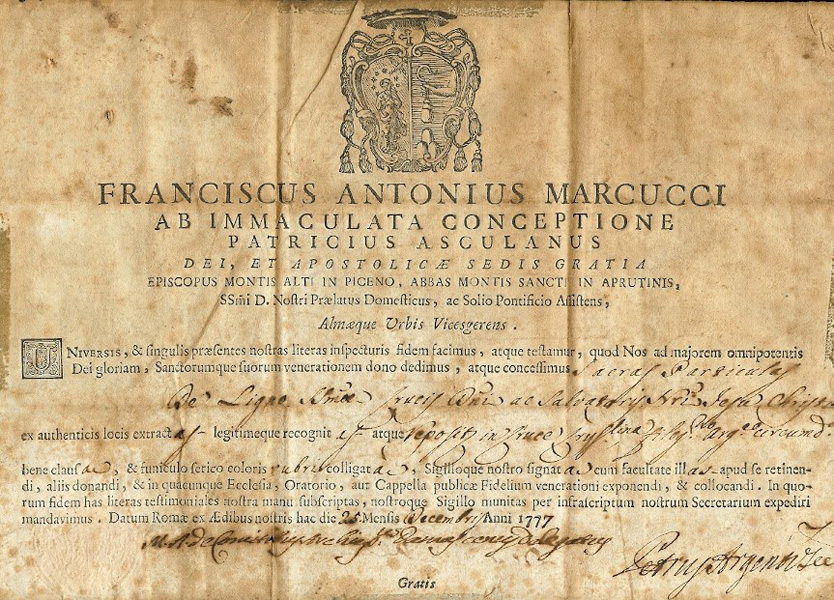 FRANCISCUS ANTONIUS MARCUCCI
AB IMMACULATA CONCEPTIONE
PATRICIUS ASCULANUS
DEI, ET APOSTOLICÆ SEDIS GRATIA
EPISCOPUS MONTIS ALTI IN PICENO, ABBAS MONTIS SANCTI IN APRUTINIS,
SSmi D. Nostri Prælatus Domesticus, ac Solio Pontificio Assistens,
Almæque Urbis Vicesgerens.
UNIVERSIS, & singulis præsentes nostras literas inspecturis fidem facimus, atque testamur, quod Nos ad majorem omnipotentis
Dei gloriam, Sanctorumque suorum venerationem dono dedimus, atque concessimus Sacras Particulas
De Ligno Crucis Dni ac Salvatoris Nri Jesu Christi
ex authenticis locis extractas legitimeque recognitas atque reposit in Cruce
bene clausac, & funiculo serico coloris rubri colligatac, Sigilloque nostro signatac cum facultate illas apud se retinen-
di, aliis donandi, & in quacunque Ecclesia, Oratorio, aut Cappella publicæ Fidelium venerationi exponendi, & collocandi. In quo-
rum fidem has literas testimoniales nostra manu subscriptas, nostroque Sigillo munitas per infrascriptum nostrum Secretarium expediri
mandavimus. Datum Romæ ex Ædibus nostris hac die 25 Mensis Decembris Anni 1777
Petrus Argenti
Gratis